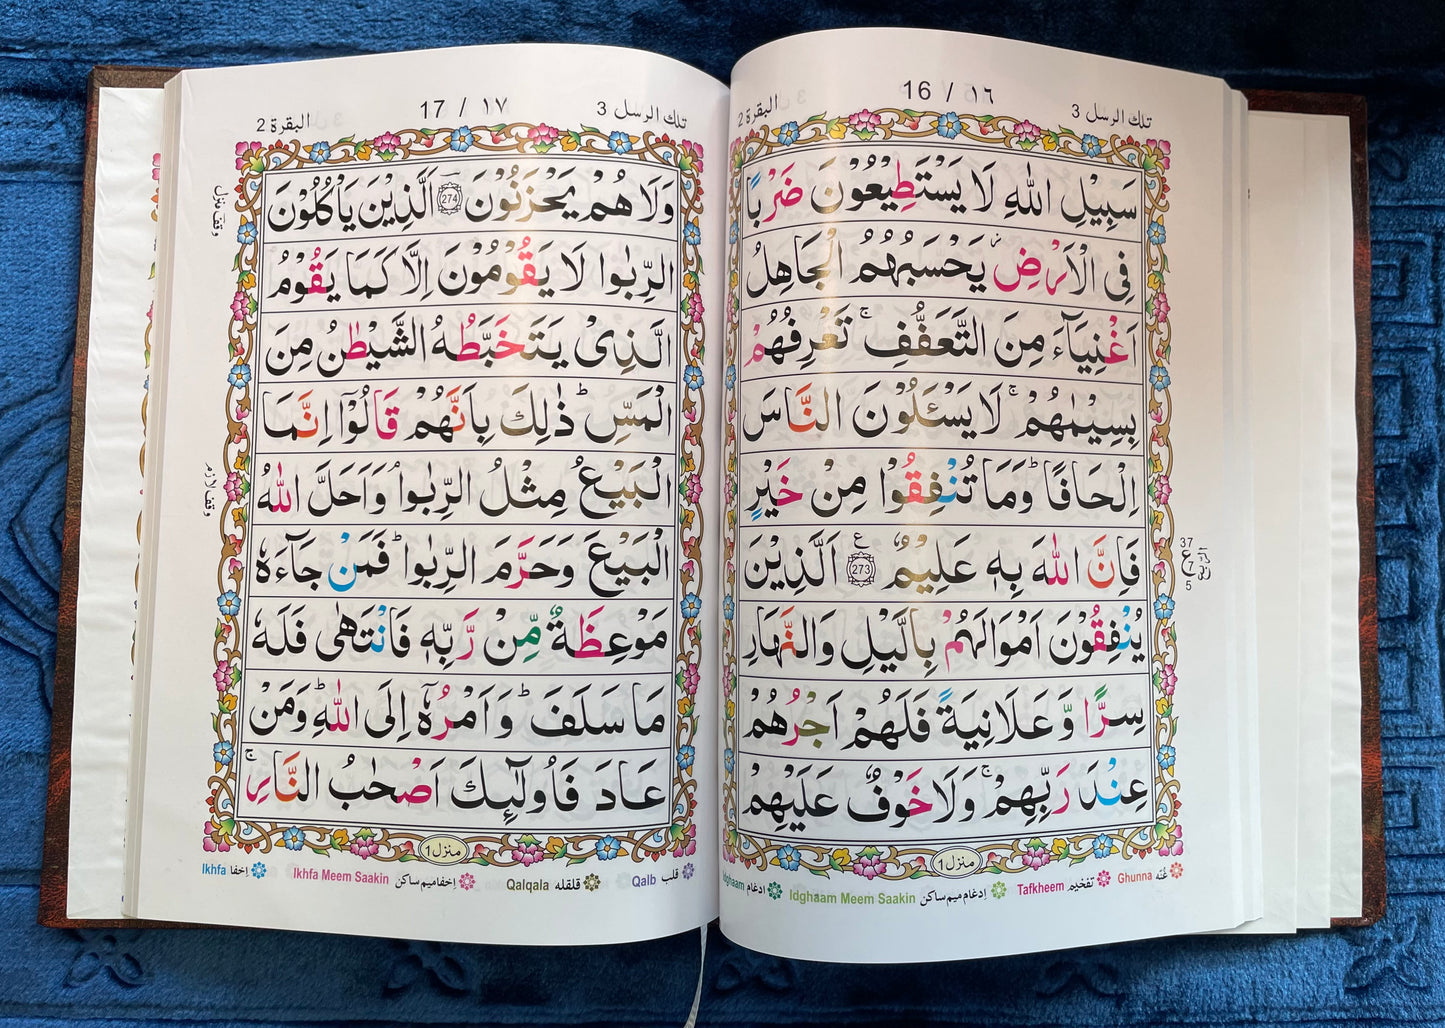 تلك الرسل 3
16 / ١٦
البقرة 2
سَبِيْلِ اللّٰهِ لَا يَسْتَطِيْعُوْنَ ضَرْبًا
فِى الْاَرْضِ ز يَحْسَبُهُمُ الْجَاهِلُ
اَغْنِيَآءَ مِنَ التَّعَفُّفِ ۚ تَعْرِفُهُمْ
بِسِيْمٰهُمْ ۚ لَا يَسْـَٔلُوْنَ النَّاسَ
اِلْحَافًا ؕ وَمَا تُنْفِقُوْا مِنْ خَيْرٍ
فَاِنَّ اللّٰهَ بِهٖ عَلِيْمٌ ع 273 اَلَّذِيْنَ
يُنْفِقُوْنَ اَمْوَالَهُمْ بِالَّيْلِ وَالنَّهَارِ
سِرًّا وَّعَلَانِيَةً فَلَهُمْ اَجْرُهُمْ
عِنْدَ رَبِّهِمْ ۚ وَلَا خَوْفٌ عَلَيْهِمْ
37
ع
7
5
منزل 1
Ghunna غُنَّه
Tafkheem تفخيم
Idghaam Meem Saakin إدغام ميم ساكن
Idghaam ادغام
تلك الرسل 3
17 / ١٧
البقرة 2
وَلَا هُمْ يَحْزَنُوْنَ 274 اَلَّذِيْنَ يَاْكُلُوْنَ
الرِّبٰوا لَا يَقُوْمُوْنَ اِلَّا كَمَا يَقُوْمُ
الَّذِىْ يَتَخَبَّطُهُ الشَّيْطٰنُ مِنَ
الْمَسِّ ؕ ذٰلِكَ بِاَنَّهُمْ قَالُوْٓا اِنَّمَا
الْبَيْعُ مِثْلُ الرِّبٰوا ۘ وَاَحَلَّ اللّٰهُ
الْبَيْعَ وَحَرَّمَ الرِّبٰوا ؕ فَمَنْ جَآءَهٗ
مَوْعِظَةٌ مِّنْ رَّبِّهٖ فَانْتَهٰى فَلَهٗ
مَا سَلَفَ ؕ وَاَمْرُهٗٓ اِلَى اللّٰهِ ؕ وَمَنْ
عَادَ فَاُولٰٓئِكَ اَصْحٰبُ النَّارِ ۚ
وقف منزل
وقف لازم
منزل 1
Qalb قلب
Qalqala قلقله
Ikhfa Meem Saakin إخفا ميم ساكن
Ikhfa إخفا